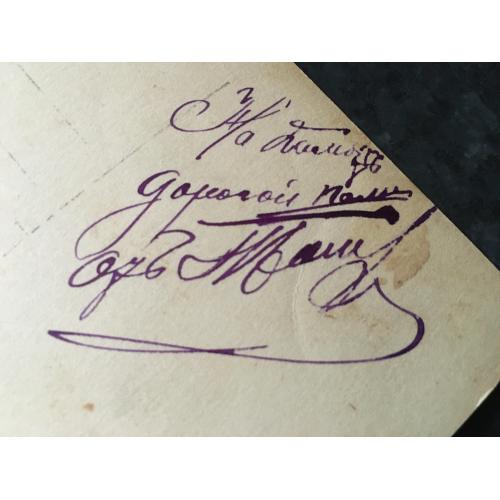 На память
дорогой Поли
отъ Тани